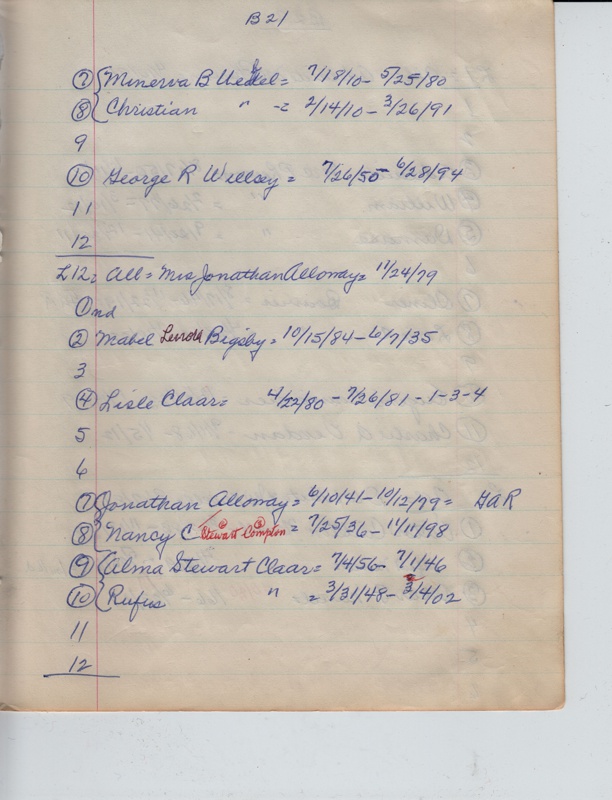 B21
⑦ Minerva B Weikel = 7/18/10 - 5/25/80
⑧ Christian " - = 2/14/10 - 3/26/91
9
⑩ George R Willsey = 7/26/50 - 6/28/94
11
12
L12: All = Mrs Jonathan Alloway = 11/24/79
① nd
② Mabel Bigsby = 10/15/84 - 6/7/35
3
④ Lisle Claar = 4/22/80 - 7/26/81 - 1-3-4
5
6
⑦ Jonathan Alloway = 6/10/41 - 10/12/79 = GaR
⑧ Nancy C Stewart Compton = 7/25/36 - 11/11/98
⑨ Alma Stewart Claar = 7/4/56 - 7/1/46
⑩ Rufus " = 3/31/48 - 3/4/02
11
12